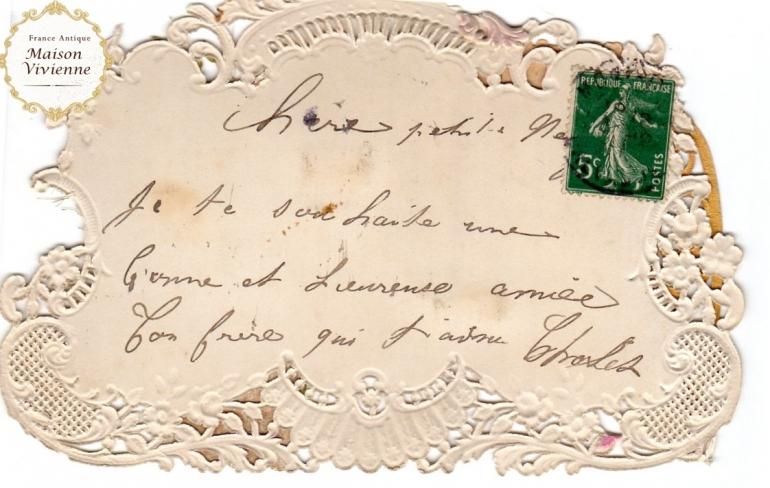 France Antique
Maison
Vivienne
REPUBLIQUE FRANÇAISE
5c
POSTES
Chère petite
Je te souhaite une
bonne et heureuse année
Ton frere qui t'aime Charles